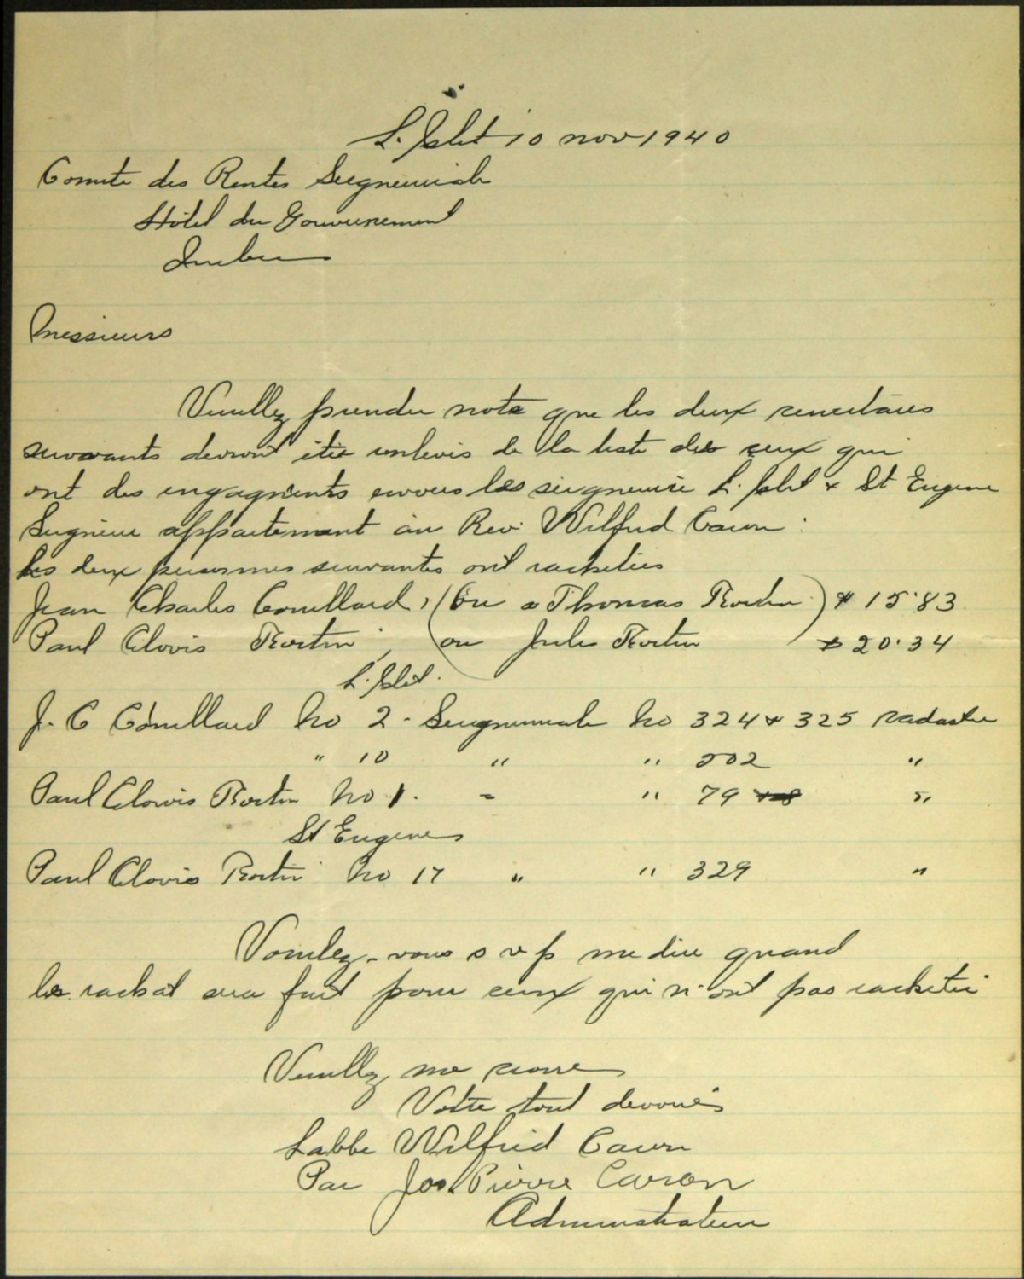 L. Islet 10 nov 1940
Comité des Rentes Seigneuriale
Hôtel du Gouvernement
Québec
Messieurs
Veuillez prendre note que les deux censitaires
suivants devront être enlevés de la liste des ceux qui
ont des engagments envers les seigneurie L. Islet & St Eugene
Seigneurie appartenant au Rev. Wilfrid Caron :
les deux personnes suivantes ont rachetées
Jean Charles Couillard, (Ou à Thomas Fortin.) $ 15.83
Paul Clovis Fortin, (ou Jules Fortin $ 20.34
L. Islet.
J. C Couillard No 2. Seigneuriale No 324 & 325 cadastre
" 10 " " 502 "
Paul Clovis Fortin No 1. " " 79 "
St Eugene
Paul Clovis Fortin No 17 " " 329 "
Voulez-vous s v p me dire quand
le rachat sera fait pour ceux qui n'ont pas racheté
Veuillez me croire
Votre tout devoué
Labbe Wilfrid Caron
Par Jos. Pierre Caron
Administrateur